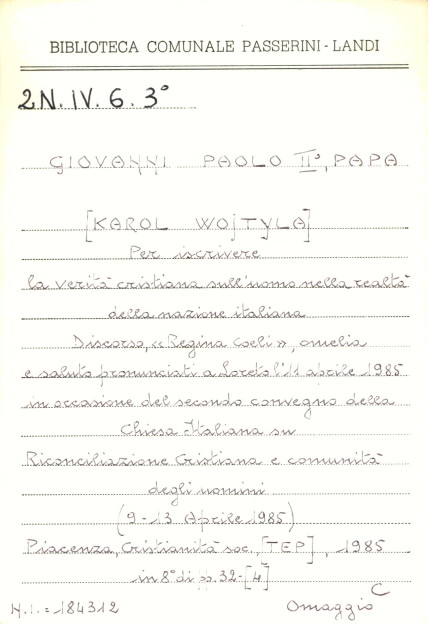 BIBLIOTECA COMUNALE PASSERINI-LANDI
2N. IV. 6. 3°
GIOVANNI PAOLO II°, PAPA
[KAROL WOJTYLA]
Per iscrivere
la verità cristiana sull'uomo nella realtà
della nazione italiana
Discorso, «Regina Coeli», omelia
e saluto pronunciati a Loreto l'11 aprile 1985
in occasione del secondo convegno della
Chiesa Italiana su
Riconciliazione Cristiana e comunità
degli uomini
(9-13 Aprile 1985)
Piacenza, Cristianità soc. [TEP], 1985
in 8° di pp. 32-[4]
C
N.I. = 184312 Omaggio